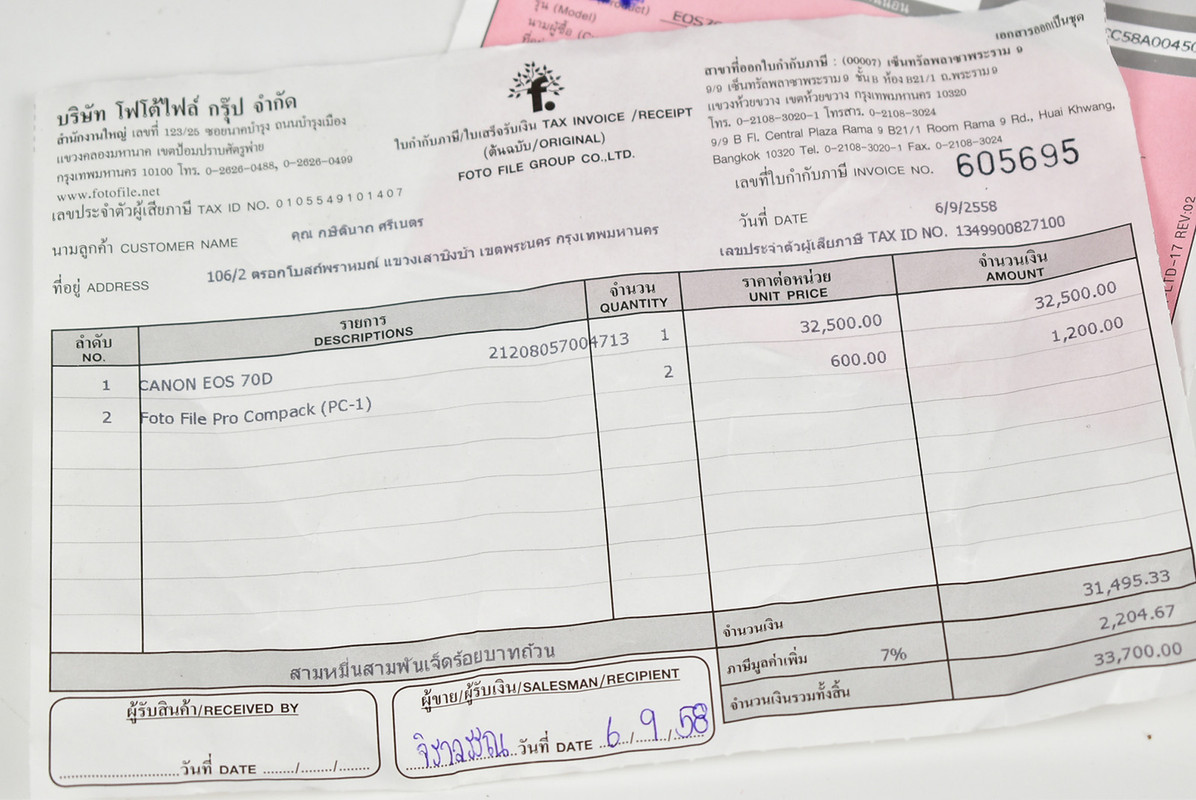 รุ่น (Model)
EOS 7
นามผู้ซื้อ
เอกสารออกเป็นชุด
CC58A00450
LTD-17 REV:02
บริษัท โฟโต้ไฟล์ กรุ๊ป จำกัด
สำนักงานใหญ่ เลขที่ 123/25 ซอยนาคบำรุง ถนนบำรุงเมือง
แขวงคลองมหานาค เขตป้อมปราบศัตรูพ่าย
กรุงเทพมหานคร 10100 โทร. 0-2626-0488, 0-2626-0499
www.fotofile.net
เลขประจำตัวผู้เสียภาษี TAX ID NO. 0105549101407
f.
ใบกำกับภาษี/ใบเสร็จรับเงิน TAX INVOICE /RECEIPT
(ต้นฉบับ/ORIGINAL)
FOTO FILE GROUP CO.,LTD.
สาขาที่ออกใบกำกับภาษี : (00007) เซ็นทรัลพลาซาพระราม 9
9/9 เซ็นทรัลพลาซาพระราม 9 ชั้น B ห้อง B21/1 ถ.พระราม 9
แขวงห้วยขวาง เขตห้วยขวาง กรุงเทพมหานคร 10320
โทร. 0-2108-3020-1 โทรสาร. 0-2108-3024
9/9 B Fl. Central Plaza Rama 9 B21/1 Room Rama 9 Rd., Huai Khwang,
Bangkok 10320 Tel. 0-2108-3020-1 Fax. 0-2108-3024
เลขที่ใบกำกับภาษี INVOICE NO. 605695
นามลูกค้า CUSTOMER NAME คุณ กษิดินาถ ศรีเนตร
วันที่ DATE 6/9/2558
ที่อยู่ ADDRESS 106/2 ตรอกโบสถ์พราหมณ์ แขวงเสาชิงช้า เขตพระนคร กรุงเทพมหานคร
เลขประจำตัวผู้เสียภาษี TAX ID NO. 1349900827100
ลำดับ รายการ จำนวน ราคาต่อหน่วย จำนวนเงิน
NO. DESCRIPTIONS QUANTITY UNIT PRICE AMOUNT
1 CANON EOS 70D 21208057004713 1 32,500.00 32,500.00
2 Foto File Pro Compack (PC-1) 2 600.00 1,200.00
จำนวนเงิน 31,495.33
ภาษีมูลค่าเพิ่ม 7% 2,204.67
จำนวนเงินรวมทั้งสิ้น 33,700.00
สามหมื่นสามพันเจ็ดร้อยบาทถ้วน
ผู้รับสินค้า/RECEIVED BY
วันที่ DATE ......../......../........
ผู้ขาย/ผู้รับเงิน/SALESMAN/RECIPIENT
จิราวรรณ วันที่ DATE 6/9/58